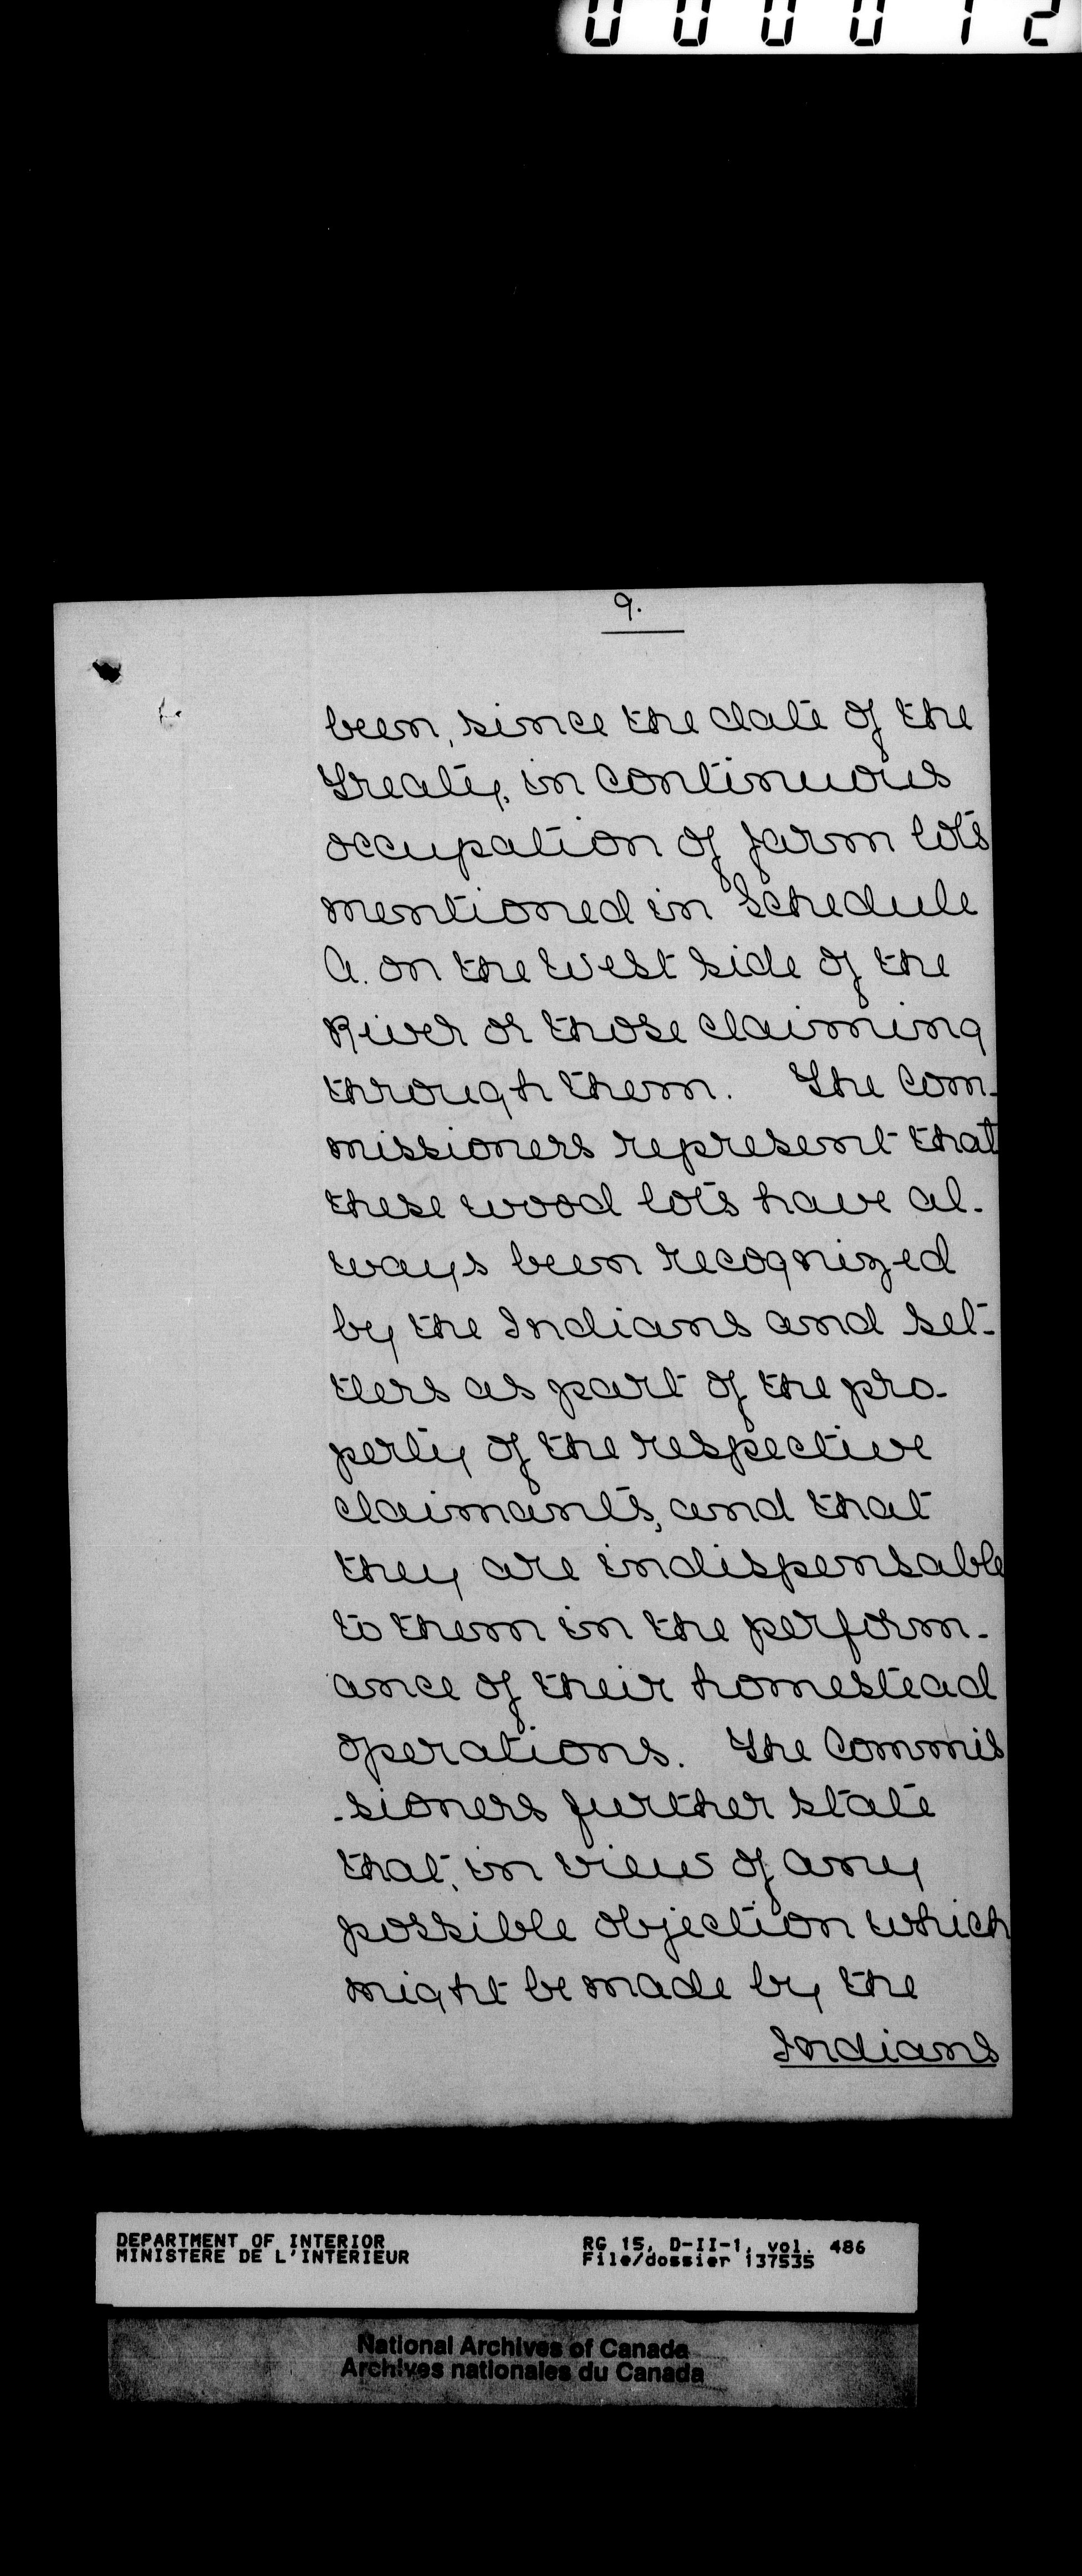 000012
9.
been, since the date of the
Treaty, in continuous
occupation of farm lots
mentioned in Schedule
A. on the West side of the
River or those claiming
through them. The Com-
missioners represent that
these wood lots have al-
ways been recognized
by the Indians and set-
tlers as part of the pro-
perty of the respective
claimants, and that
they are indispensable
to them in the perform-
ance of their homestead
operations. The Commis
-sioners further state
that, in view of any
possible objection which
might be made by the
Indians
DEPARTMENT OF INTERIOR
MINISTERE DE L'INTERIEUR
RG 15, D-II-1, vol. 486
File/dossier 137535
National Archives of Canada
Archives nationales du Canada